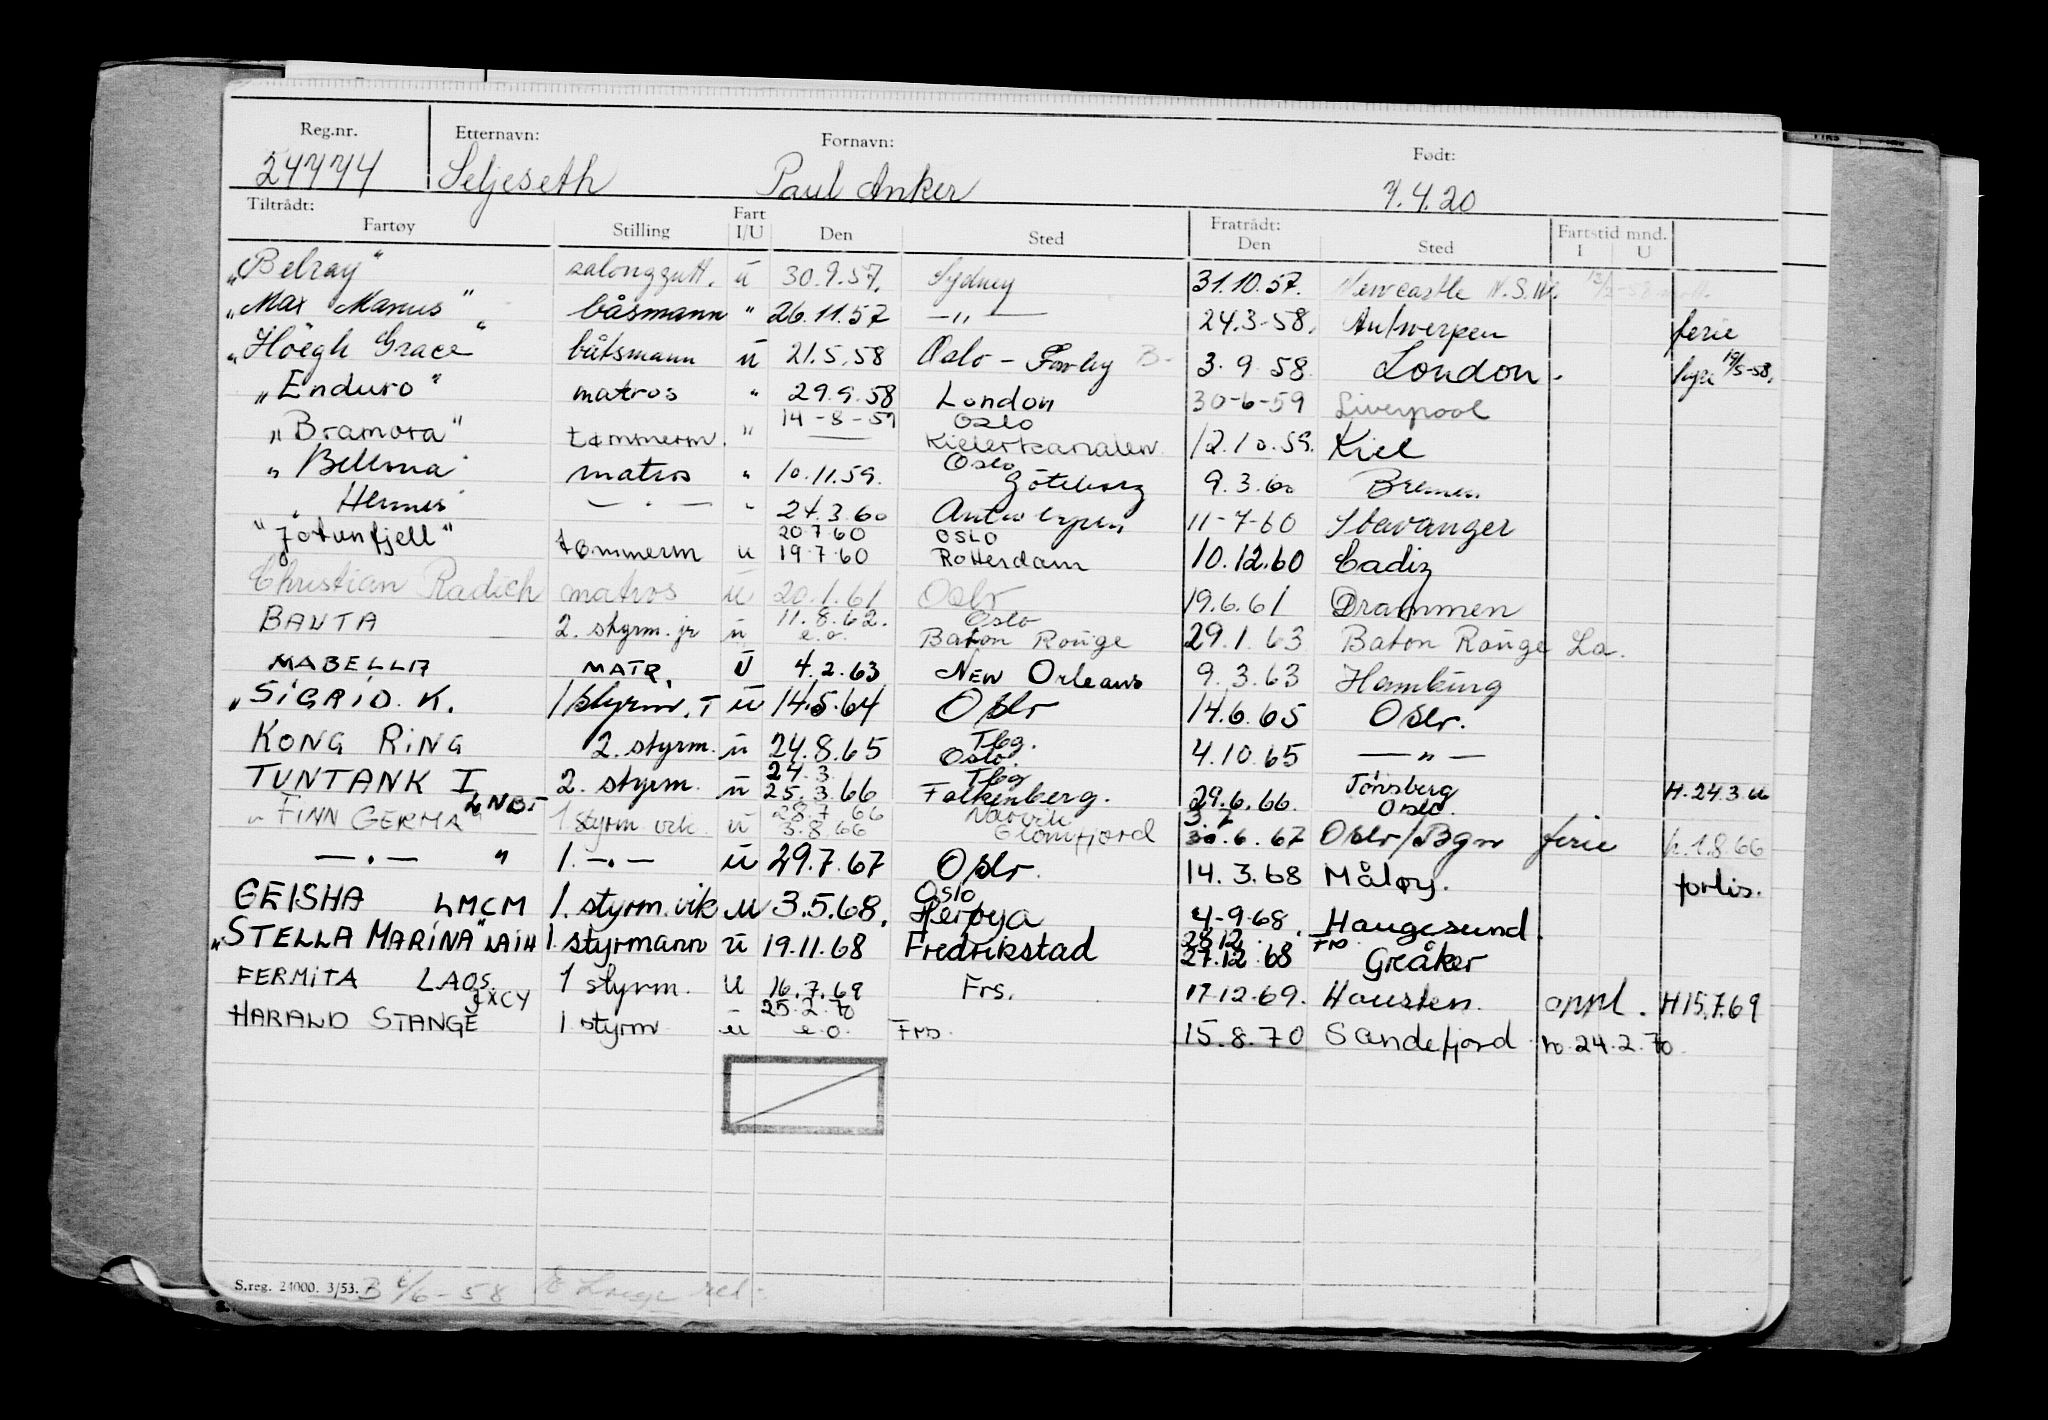 Reg.nr. Etternavn: Fornavn: Født:
24774 Seljeseth Paul Anker 7.4.20
Tiltrådt: Fart Fratrådt: Fartstid mnd.
Fartøy Stilling I/U Den Sted Den Sted I U
"Belray" salonggutt. ü 30.9.57. Sydney 31.10.57. Newcastle N.S.W.
"Max Manus" båsmann " 26.11.57 —"— 24.3-58. Antwerpen ferie
"Höegh Grace" båtsmann ü 21.5.58 Oslo - 3.9.58. London. hyre 19/5-58.
"Enduro" matros " 29.9.58 London 30-6-59 Liverpool
14-8-59 Oslo
"Bramora" tømmerm. " — Kielerkanalen 12.10.59. Kiel
"Bellona" matros " 10.11.59. Oslo Göteborg 9.3.60 Bremen.
" Hermes —"— " 24.3.60 Antwerpen 11-7-60 Stavanger
20.7.60 OSLO
"Jotunfjell" tømmerm u 19.7.60 Rotterdam 10.12.60 Cadiz
Christian Radich matros ü 20.1.61 Oslo 19.6.61 Drammen
11.8.62. Oslo
BANTA 2. styrm. jr ü e.o. Baton Rouge 29.1.63 Baton Rouge La.
MABELLA MATR. Ü 4.2.63 New Orleans 9.3.63 Hamburg
"SIGRID. K. 1 styrm. T ü 14.5.64 Oslo 14.6.65 Oslo.
KONG RING 2. styrm. ü 24.8.65 Tbg. Oslo. 4.10.65 —"—
24.3 Tbg
TUNTANK I 2. styrm. ü 25.3.66 Falkenberg. 29.6.66. Tönsberg H.24.3.66
LNBJ 28.7.66 Narvik 3.7 Oslo
"FINN GERMA" 1 styrm vik. ü 3.8.66 Glomfjord 30.6.67 Oslo/Bgn ferie h.1.8.66
—"— " 1. —"— ü 29.7.67 Oslo. 14.3.68 Måløy. forlis.
Oslo
GEISHA LMCM 1. styrm. vik u 3.5.68. Herøya 4-9-68. Haugesund.
28.12. FRS
"STELLA MARINA" LAIH 1. styrmann ü 19.11.68 Fredrikstad 27.12.68 Greåker
FERMITA LAOS. 1 styrm. U 16.7.69 Frs. 17.12.69. Houston. oppl. H15.7.69
JXCY 25.2.70
HARALD STANGE 1 styrm ü e.o. FRS. 15.8.70 Sandefjord ho.24.2.70.
S.reg. 24000. 3/53. B 6/6-58